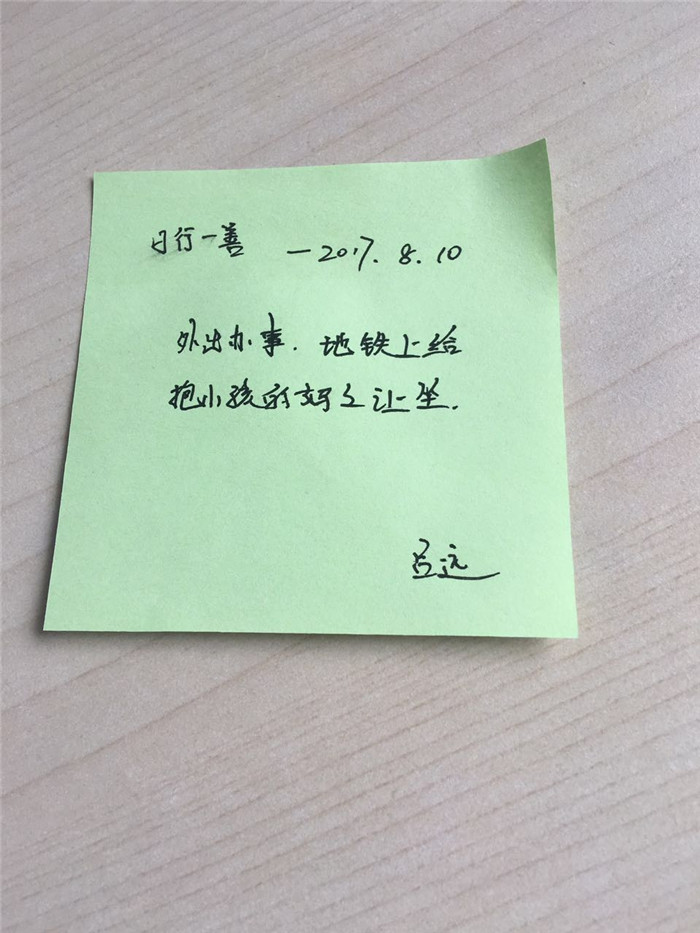 日行一善 —2017.8.10
外出办事.地铁上给
抱小孩的妇女让坐.
吕远